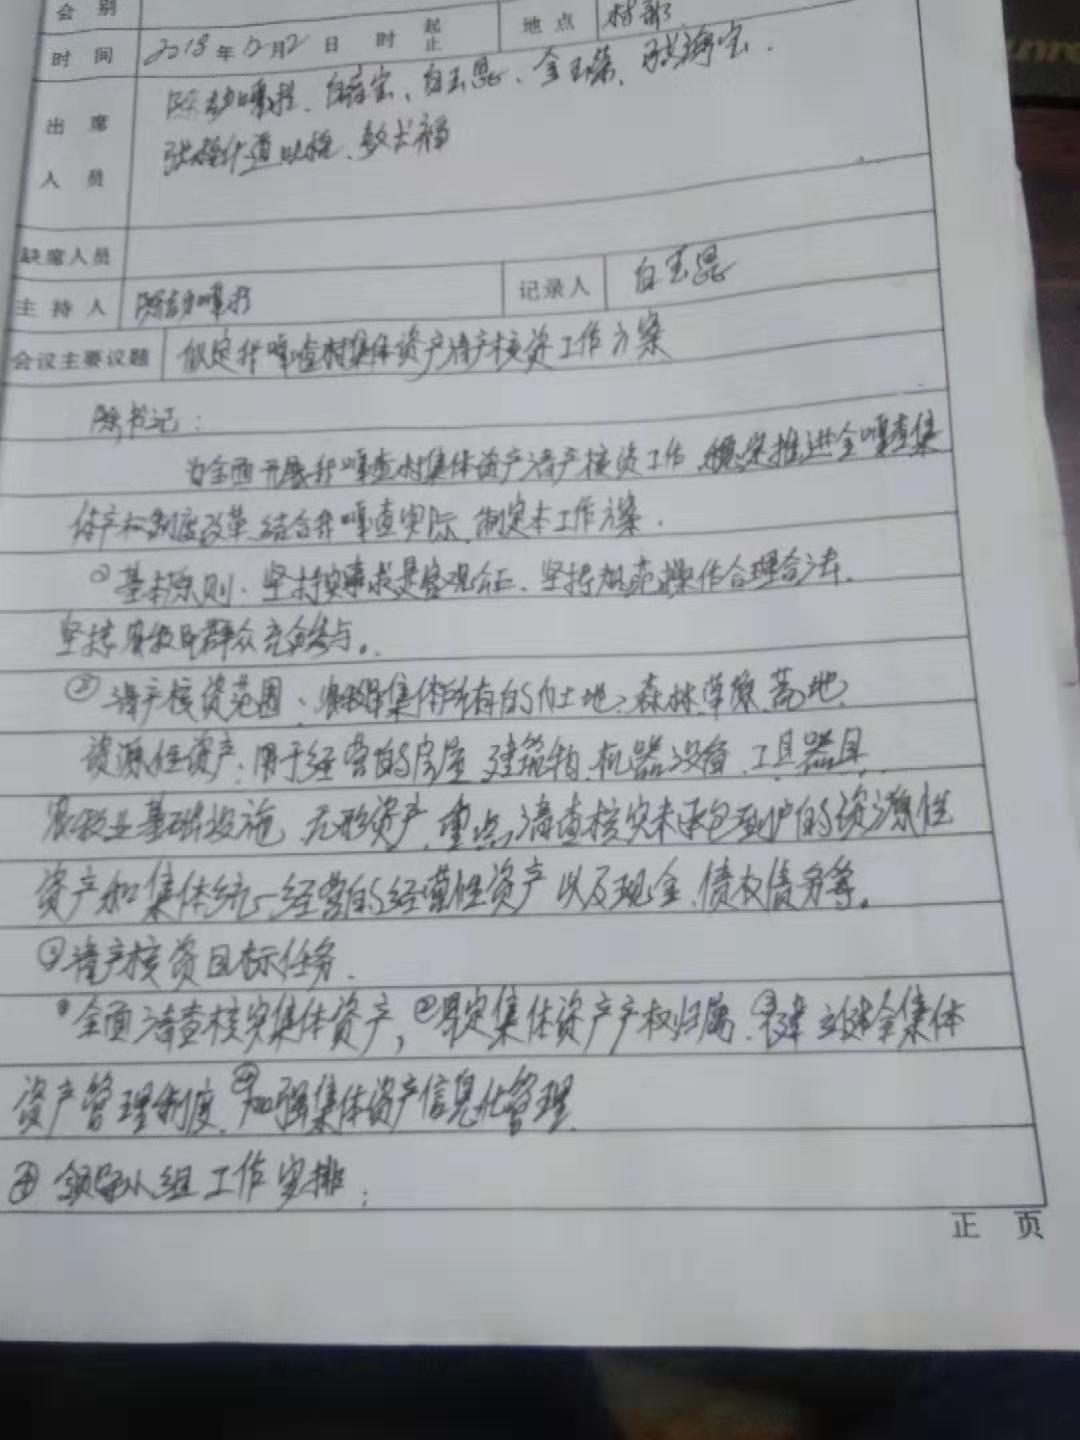 会 别
时 间 2018年12月2日 时 起止 地 点 村部
出 席 陈 白 宝、白玉恩、金玉荣、 海宝.
人 员 张 道 长福
缺席人员
主 持 人 陈 记录人 白玉恩
会议主要议题 拟定我嘎查村集体资产清产核资工作方案
陈书记:
为全面开展我嘎查村集体资产清产核资工作 稳定推进全嘎查集
体产权制度改革,结合我嘎查实际,制定本工作方案.
① 基本原则、坚持实事求是客观公正、坚持规范操作合理合法.
坚持农牧民群众充分参与。
② 清产核资范围、农牧民集体所有的土地、森林、草原、荒地、
资源性资产、用于经营的房屋 建筑物、机器设备、工具器具
农牧业基础设施,无形资产,重点清查核实未承包到户的资源性
资产和集体统一经营的经营性资产以及现金、债权债务等。
③清产核资目标任务.
①全面清查核实集体资产,②界定集体资产产权归属.③建立健全集体
资产管理制度.④加强集体资产信息化管理
④ 领导小组工作安排:
正 页